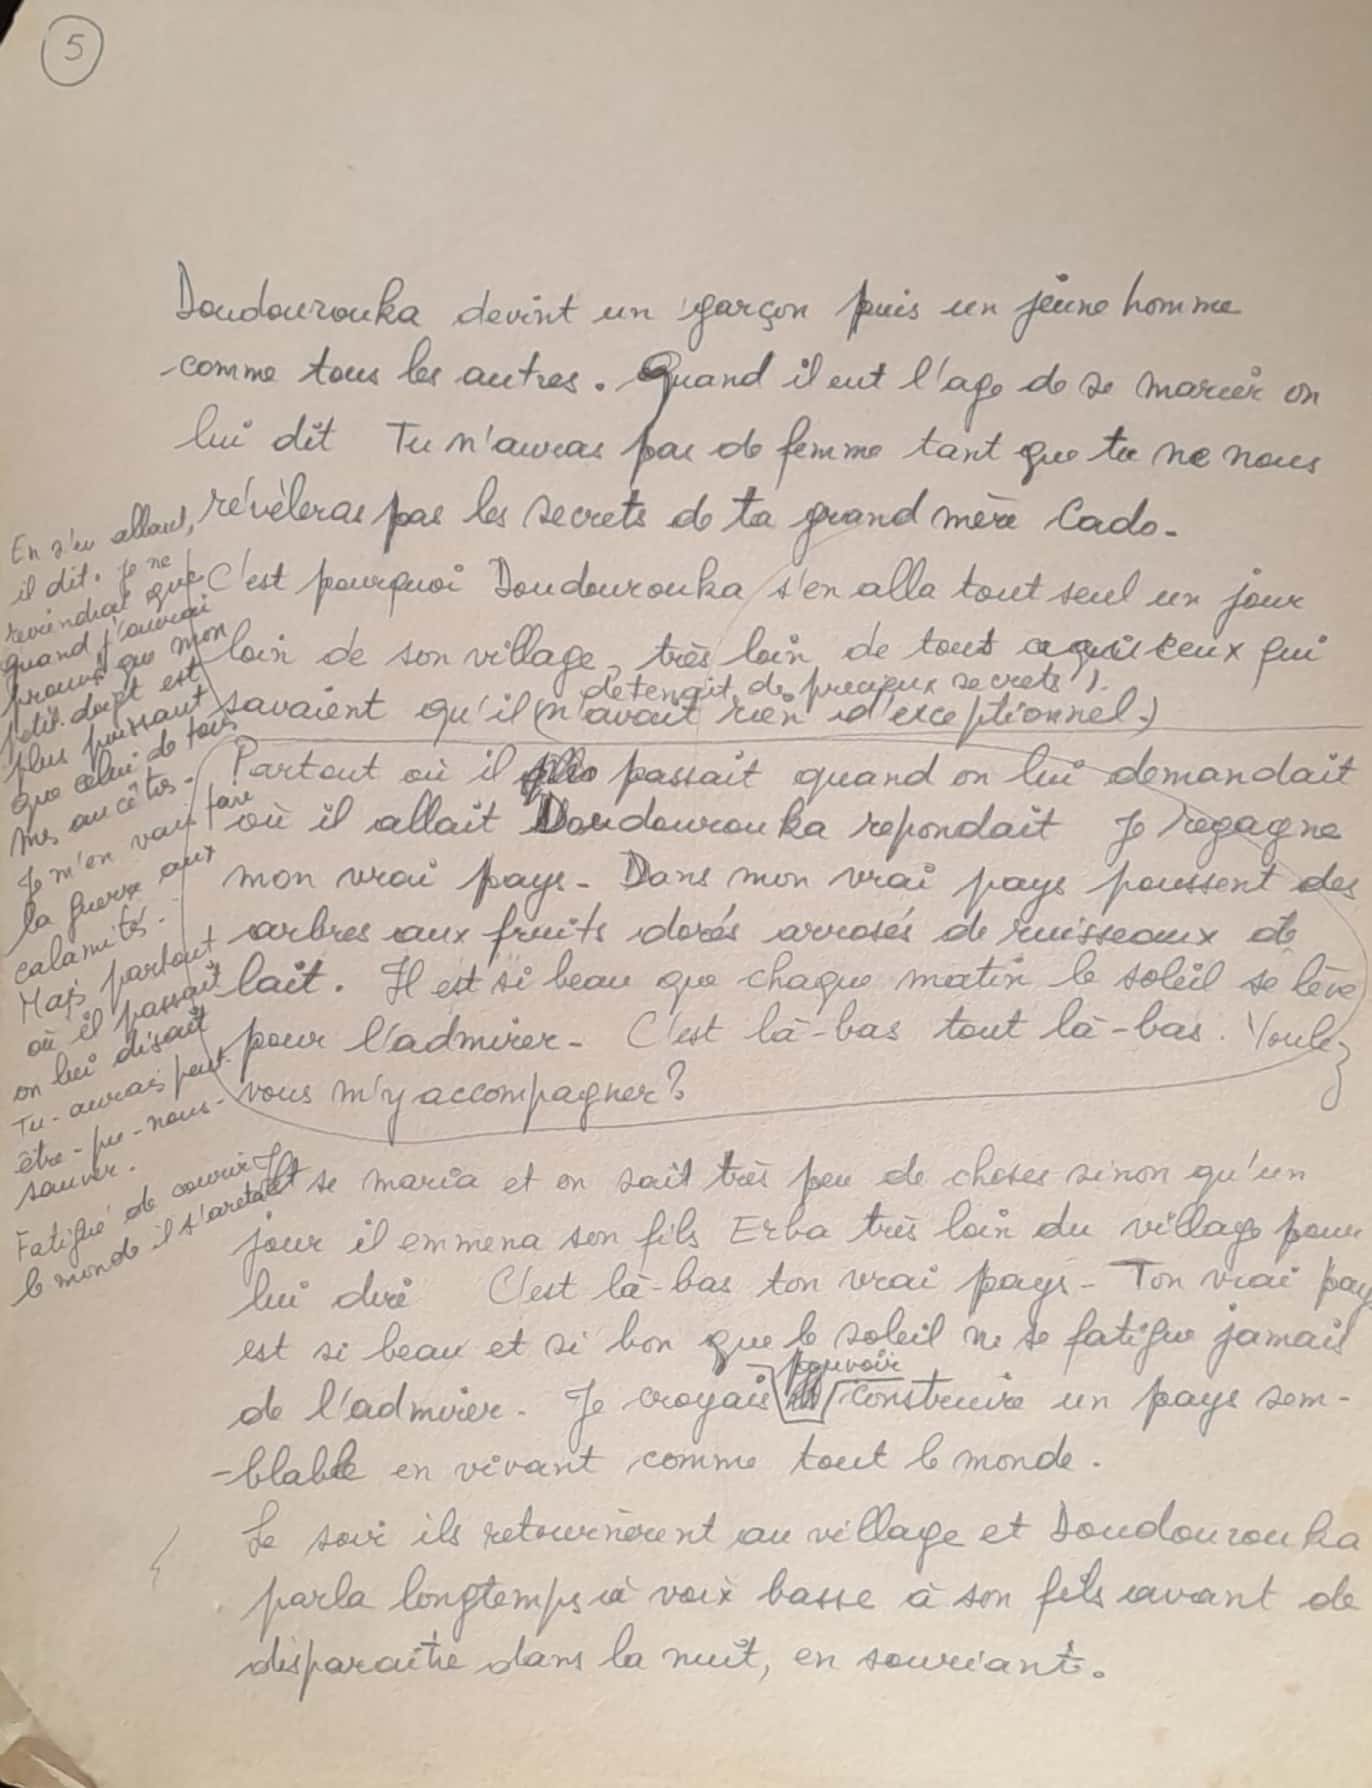 5
Doudourouka devint un garçon puis un jeune homme
comme tous les autres. Quand il eut l'age de se marier on
lui dit Tu n'auras pas de femme tant que tu ne nous
révèleras pas les secrets de ta grand mère Cado.
C'est pourquoi Doudourouka s'en alla tout seul un jour
loin de son village, très loin de tous ceux qui
detenait de precieux secrets).
savaient qu'il (n'avait rien d'exceptionnel.)
Partout où il passait quand on lui demandait
où il allait Doudourouka repondait Je regagne
mon vrai pays - Dans mon vrai pays poussent des
arbres aux fruits dorés arrosés de ruisseaux de
lait. Il est si beau que chaque matin le soleil se lève
pour l'admirer - C'est là-bas tout là-bas. Voulez
vous m'y accompagner?
Il se maria et on sait très peu de choses sinon qu'un
jour il emmena son fils Erba très loin du village pour
lui dire C'est là-bas ton vrai pays - Ton vrai pay
est si beau et si bon que le soleil ne se fatigue jamais
pouvoir
de l'admirer - Je croyais construire un pays sem-
-blable en vivant comme tout le monde.
Le soir ils retournèrent au village et Doudourouka
parla longtemps à voix basse à son fils avant de
disparaitre dans la nuit, en souriant.
En s'en allant,
il dit. Je ne
reviendrai que
quand j'aurai
prouvé que mon
petit doigt est
plus puissant
que celui de tous
mes ancêtres -
Je m'en vais faire
la guerre aux
calamités -
Mais partout
où il passait
on lui disait
Tu - aurais peut-
être - pu - nous -
sauver.
Fatigué de courir
le monde il s'arreta et